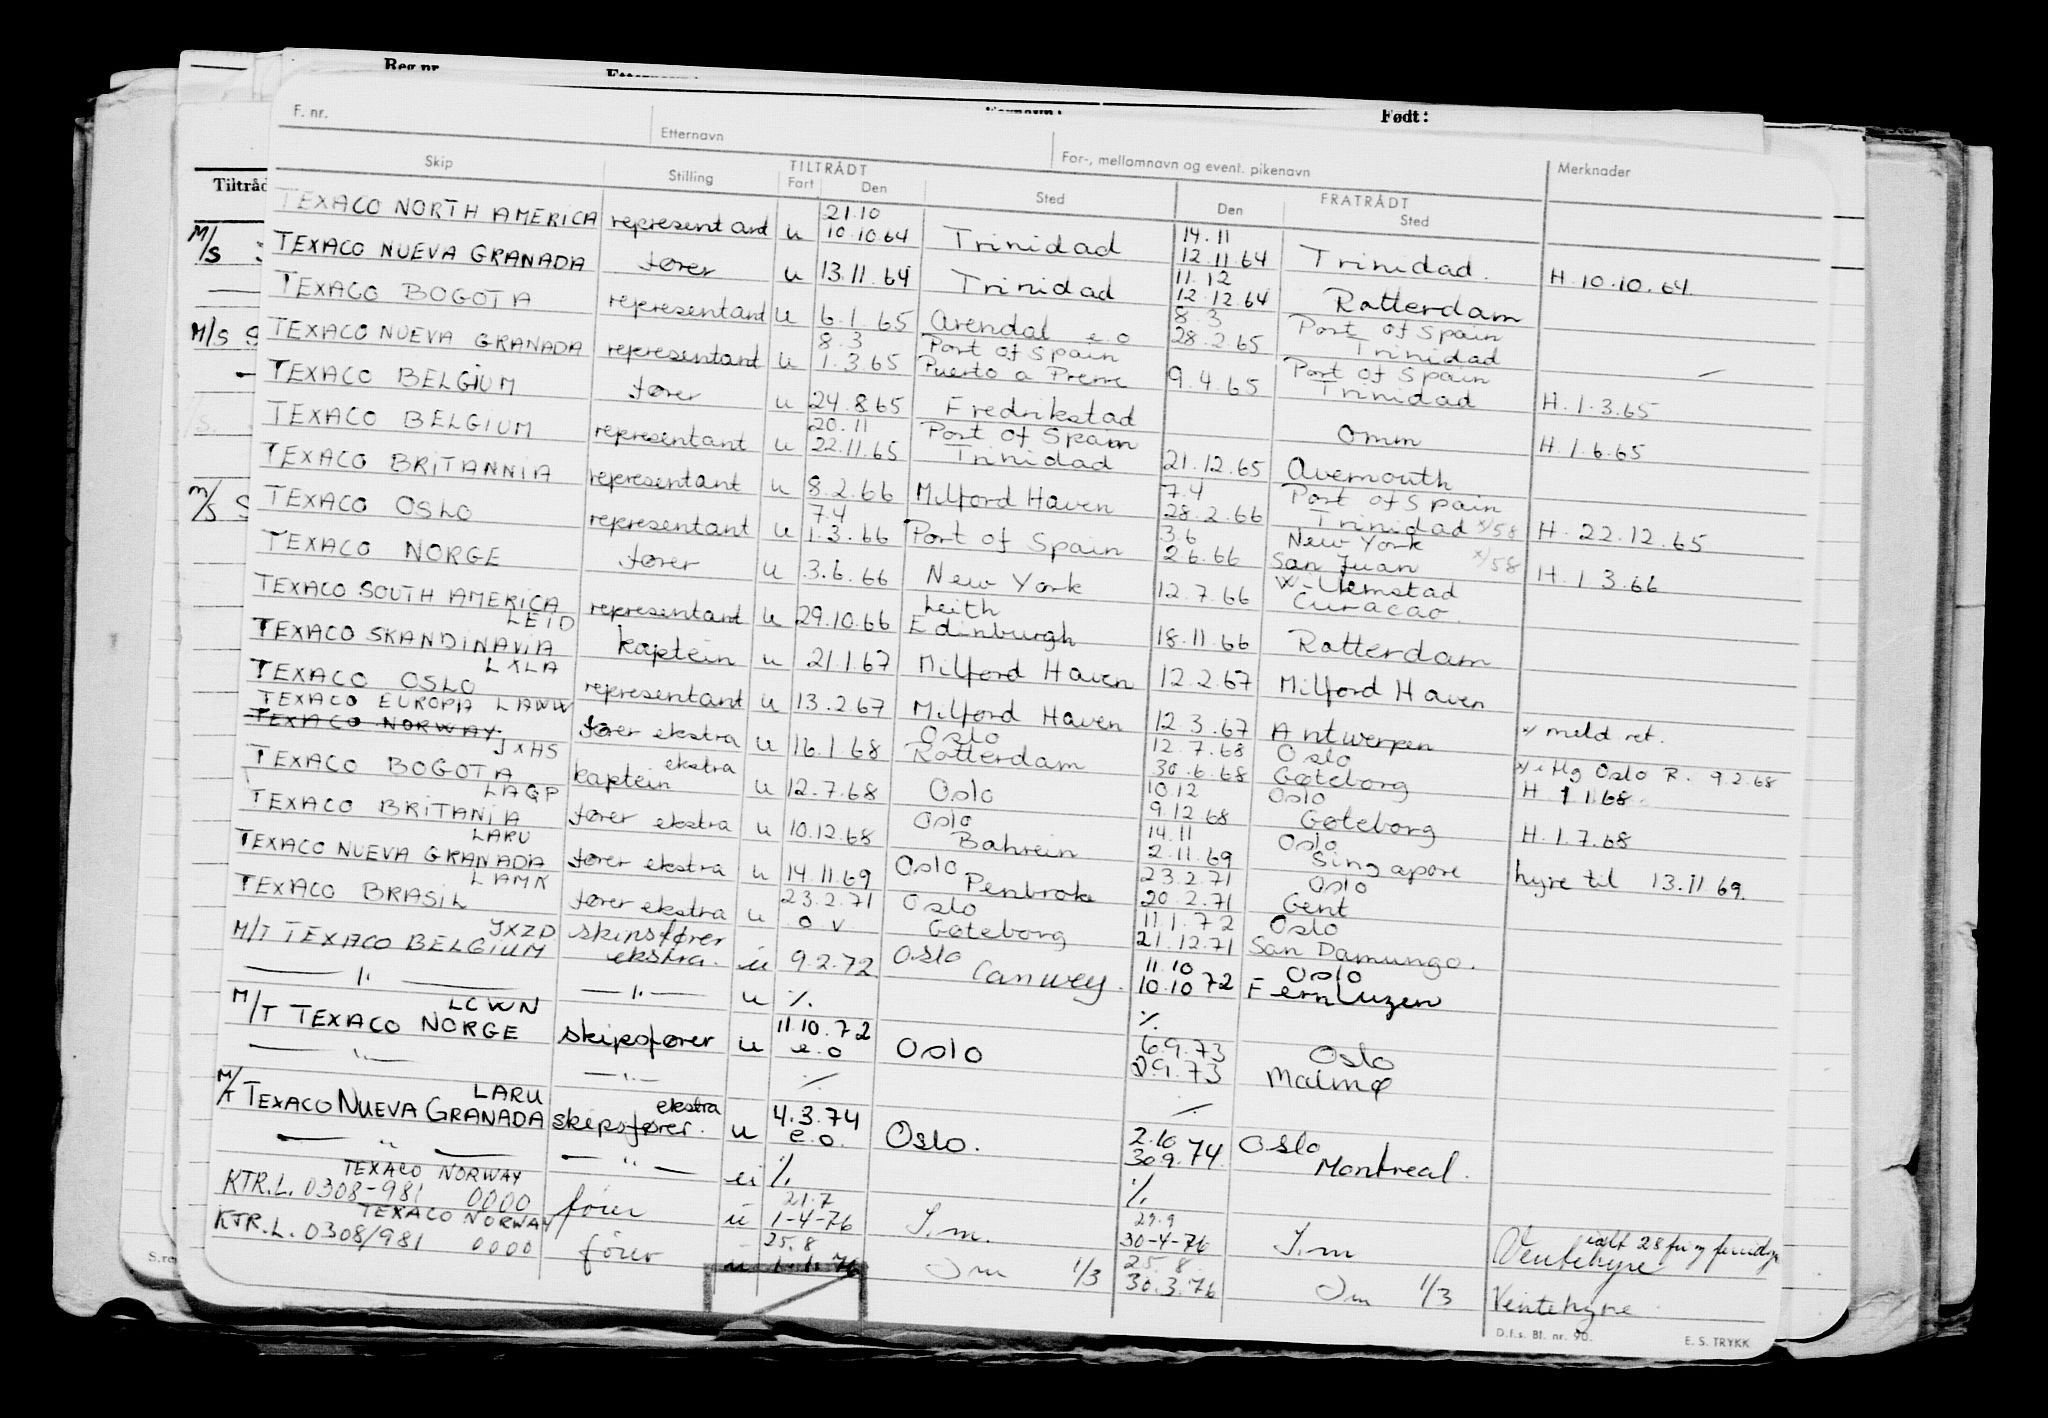 Reg.nr.
Født:
F. nr.
Etternavn
For-, mellomnavn og event. pikenavn
Merknader
Skip Stilling TILTRÅDT Fart Den Sted FRATRÅDT Den Sted
Tiltråd
M/S
M/S S
M/S S
21.10 14.11
TEXACO NORTH AMERICA representant u 10.10.64 Trinidad 12.11.64 Trinidad. H. 10.10.64.
11.12
TEXACO NUEVA GRANADA fører u 13.11.64 Trinidad 12.12.64 Rotterdam
8.3 Port of Spain
TEXACO BOGOTA representant u 6.1 65 Arendal e.o 28.2.65 Trinidad
8.3 Port of Spain Port of Spain
TEXACO NUEVA GRANADA representant u 1.3.65 Puerto a Pierre 9.4.65 Trinidad H.1.3.65
TEXACO BELGIUM fører u 24.8.65 Fredrikstad omm H.1.6.65
20.11 Port of Spain
TEXACO BELGIUM representant u 22.11.65 Trinidad 21.12.65 Avemouth
7.4 Port of Spain
TEXACO BRITANNIA representant u 8.2.66 Milford Haven 28.2.66 Trinidad x/58 H. 22.12.65
7.4 3.6 New York
TEXACO OSLO representant u 1.3.66 Port of Spain 2.6.66 San Juan x/58 H.1 3.66
Willemstad
TEXACO NORGE fører u 3.6.66 New York 12.7.66 Curacao.
Leith
TEXACO SOUTH AMERICA representant u 29.10.66 Edinburgh 18.11.66 Rotterdam
LEID
TEXACO SKANDINAVIA kaptein u 21.1.67 Milford Haven 12.2.67 Milford Haven
LXLA
TEXACO OSLO representant u 13.2.67 Milford Haven 12.3.67 Antwerpen x/ meld ret.
TEXACO EUROPA LAWW Oslo 12.7.68 Oslo Hg Oslo R. 9.2.68
TEXACO NORWAY. fører ekstra u 16.1.68 Rotterdam 30.6.68 Gøteborg H 1 1.68.
JXHS ekstra 10.12 Oslo
TEXACO BOGOTA kaptein u 12.7.68 Oslo 9.12 68 Gøteborg H.1.7.68
LAQP Oslo 14.11 Oslo
TEXACO BRITANIA fører ekstra u 10.12.68 Bahrein 2.11.69 Singapore hyre til 13.11 69.
LARU Oslo 23.2.71 Oslo
TEXACO NUEVA GRANADA fører ekstra u 14.11.69 Penbroke 20.2.71 Gent
LAMK 23.2.71 Oslo 11.1.72 Oslo
TEXACO BRASIL fører ekstra u o v Gøteborg 21.12.71 San Damungo.
JXZD skipsfører Oslo 11.10 Oslo
M/T TEXACO BELGIUM ekstra. u 9.2.72 Canwey. 10.10 72
— " — — " — u ٪ ٪
LCWN 11.10.72 6.9.73 Oslo
M/T TEXACO NORGE skipsfører u e.o Oslo 29.73 Malmø
— " — — " — ٪ ٪
LARU ekstra 4.3.74 2.10 Oslo
M/T TEXACO NUEVA GRANADA skipsfører. u e.o. Oslo. 30.9.74. Montreal.
— " — — " — u ٪ ٪
TEXACO NORWAY 21.7 29.9
KTR.L. 0308-981 0000 fører u 1-4-76 I.m. 30-4-76 I.m Ventehyre
TEXACO NORWAY 25.8 25.8
KTR.L. 0308/981 0000 fører u 1.1.76 Im 1/3 30.3.76 Im 1/3 Ventehyre
D.f.s. Bl. nr. 90. E. S. TRYKK